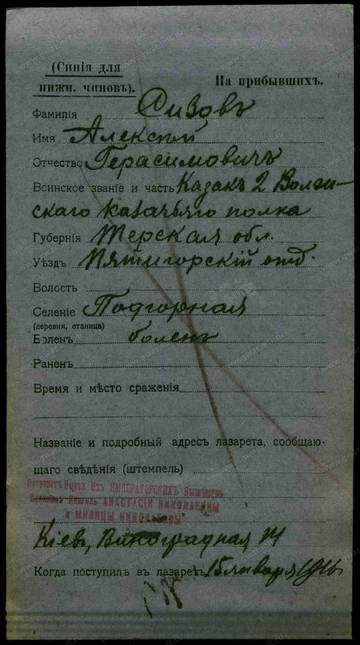 (Синія для
нижн. чиновъ).
На прибывшихъ.
Фамилія Сизовъ
Имя Алексѣй
Отчество Герасимовичъ
Воинское званіе и часть Казакъ 2 Волг-
скаго казачьяго полка
Губернія Терская обл.
Уѣздъ Пятигорскій отд.
Волость
Селеніе Подгорная
(деревня, станица)
Боленъ боленъ
Раненъ
Время и мѣсто сраженія
Названіе и подробный адресъ лазарета, сообщаю-
щаго свѣдѣнія (штемпель)
Ихъ ИМПЕРАТОРСКИХЪ Высочествъ
АНАСТАСІИ НИКОЛАЕВНЫ
и МИЛИЦЫ НИКОЛАЕВНЫ
Кіевъ, Виноградная 14
Когда поступилъ въ лазаретъ 15 января 1916